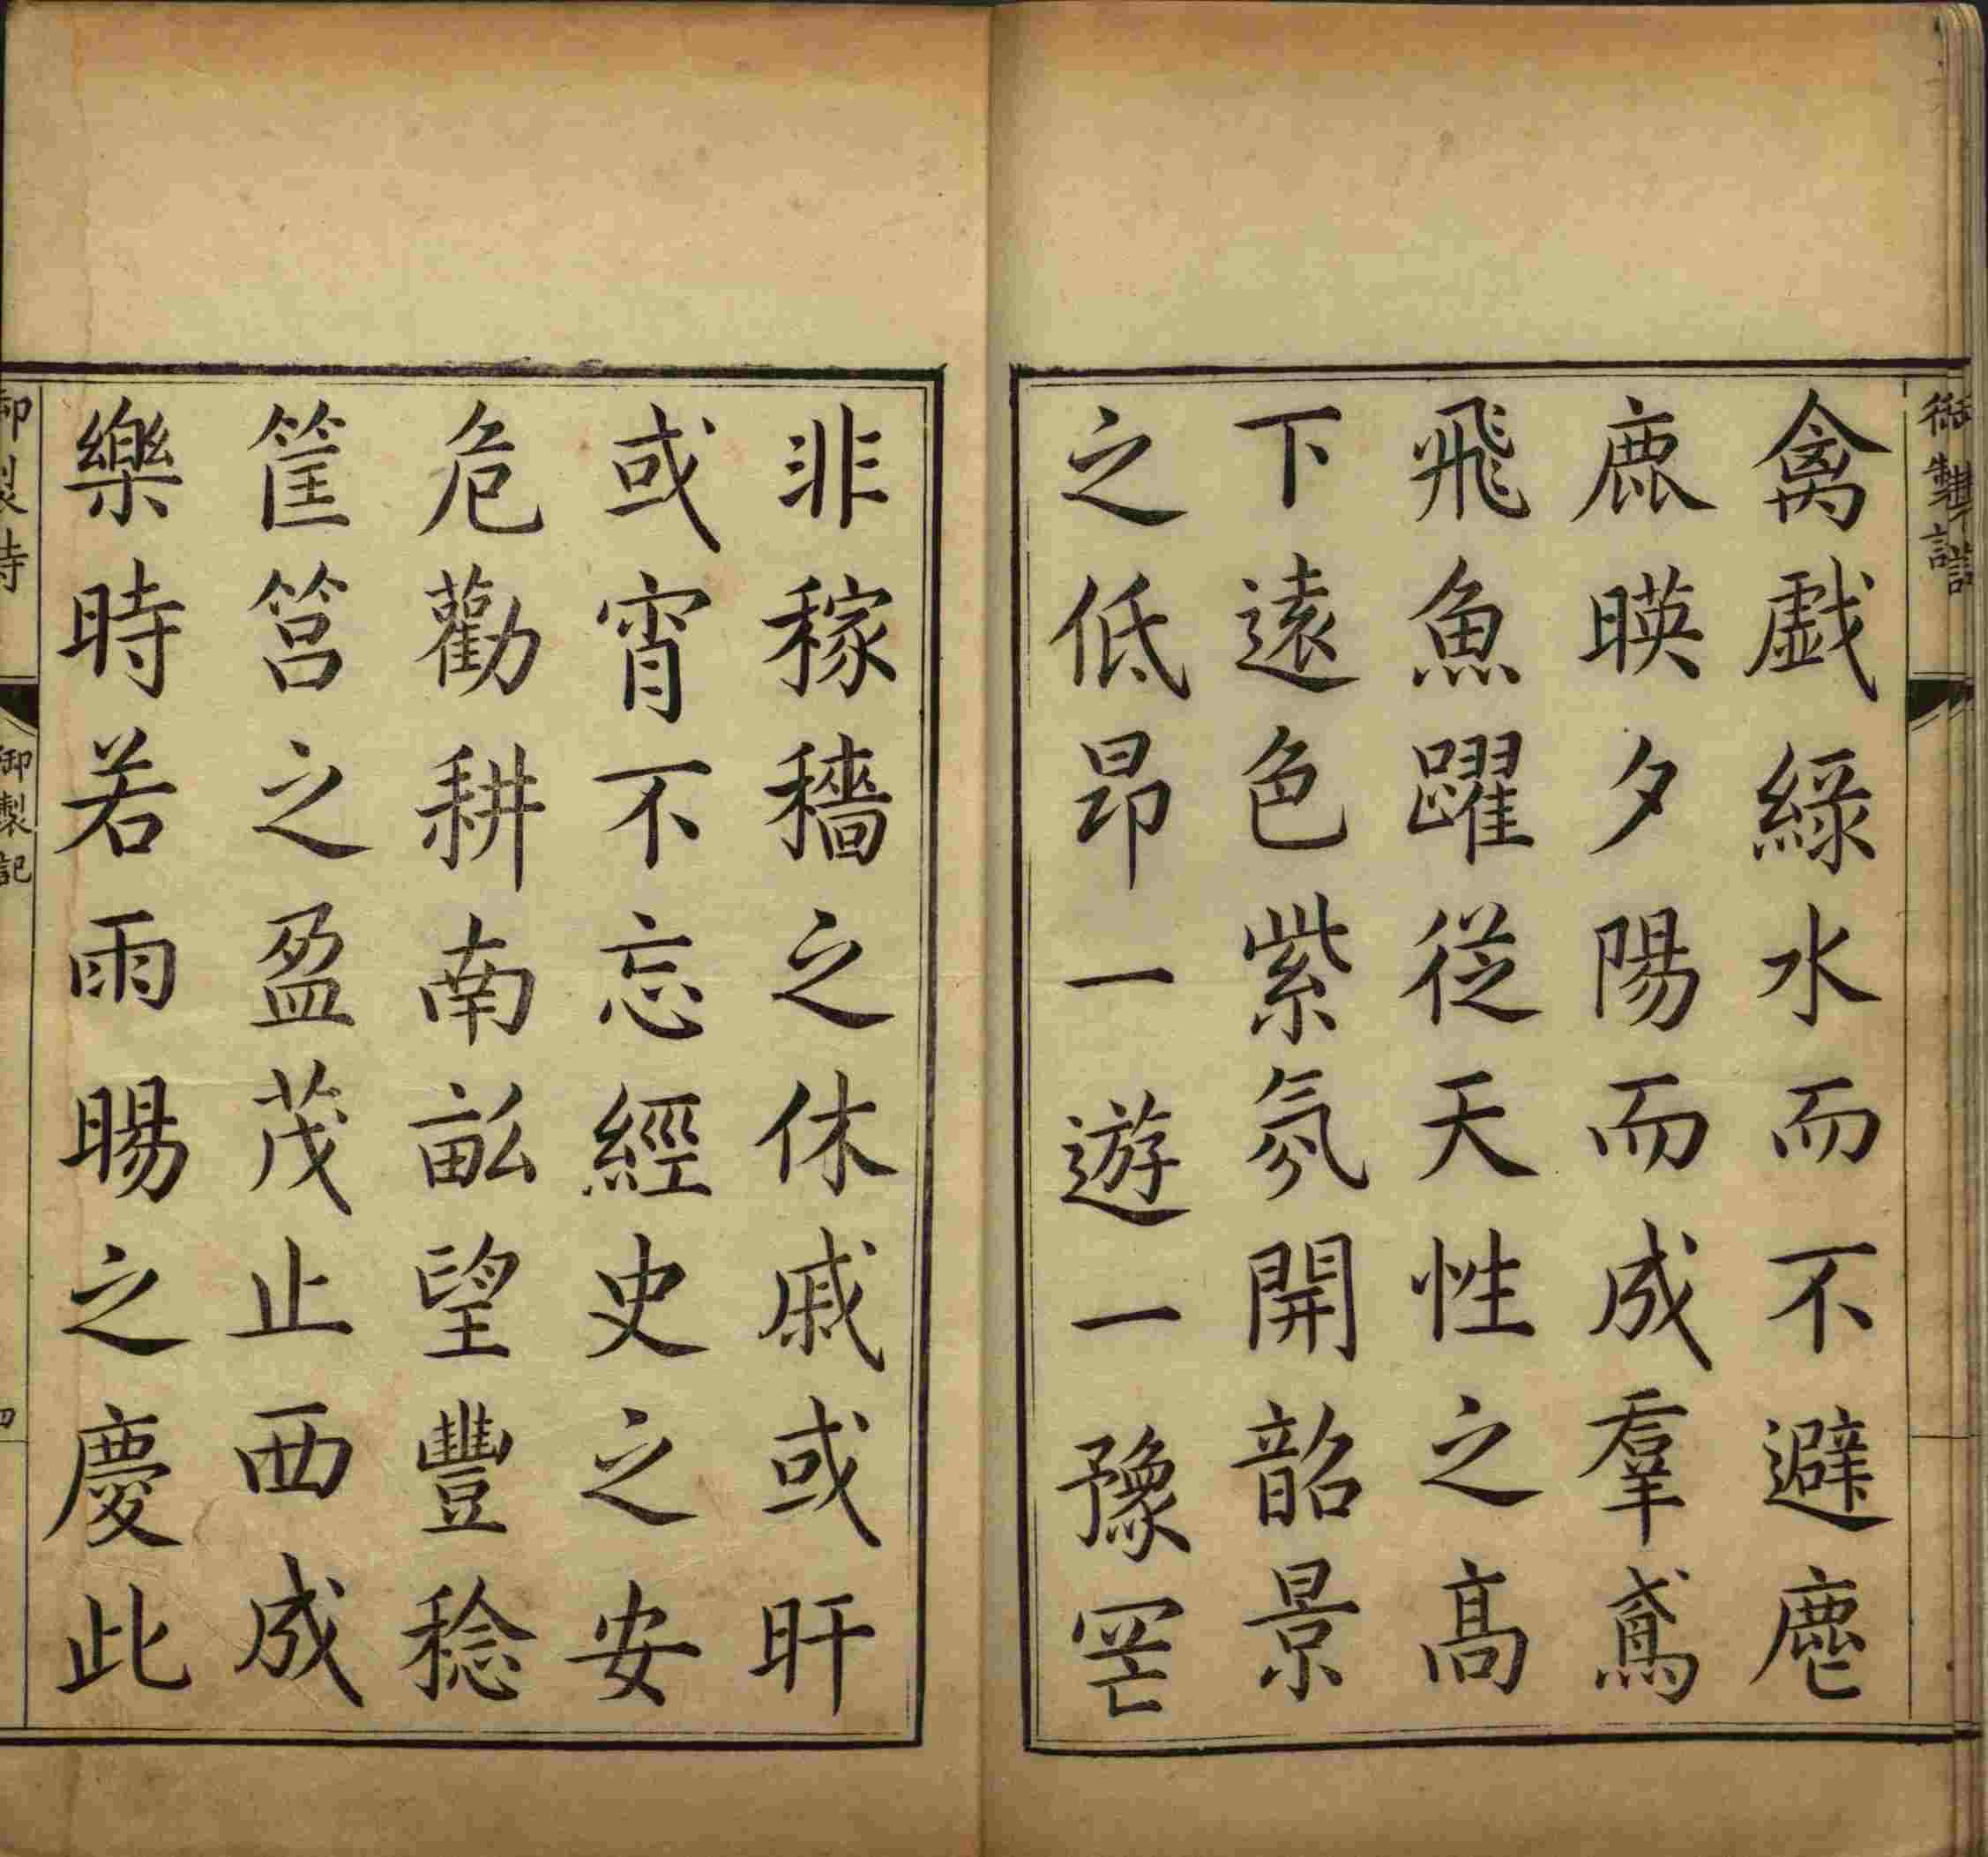 禽戯緑水而不避麀
鹿暎夕陽而成羣鳶
飛魚躍從天性之高
下遠色紫氛開韶景
之低昂一遊一豫罔
非稼穡之休戚或旰
或宵不忘經史之安
危勸耕南畝望豐稔
筐筥之盈茂止西成
樂時若雨暘之慶此
御製詩
御製記
四